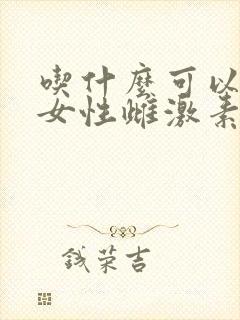 喫什麼可以
女性雌激素
錢荣吉